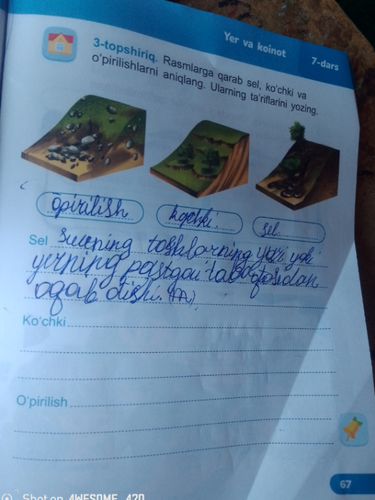 Yer va koinot
7-dars
3-topshiriq. Rasmlarga qarab sel, ko'chki va
o'pirilishlarni aniqlang. Ularning ta'riflarini yozing.
opirilish
kochki.
sel
Sel suvning toshlarning yoki
yerning pastgai
oqab otishi.
Ko'chki
O'pirilish
67
Shot on AWESOME A20